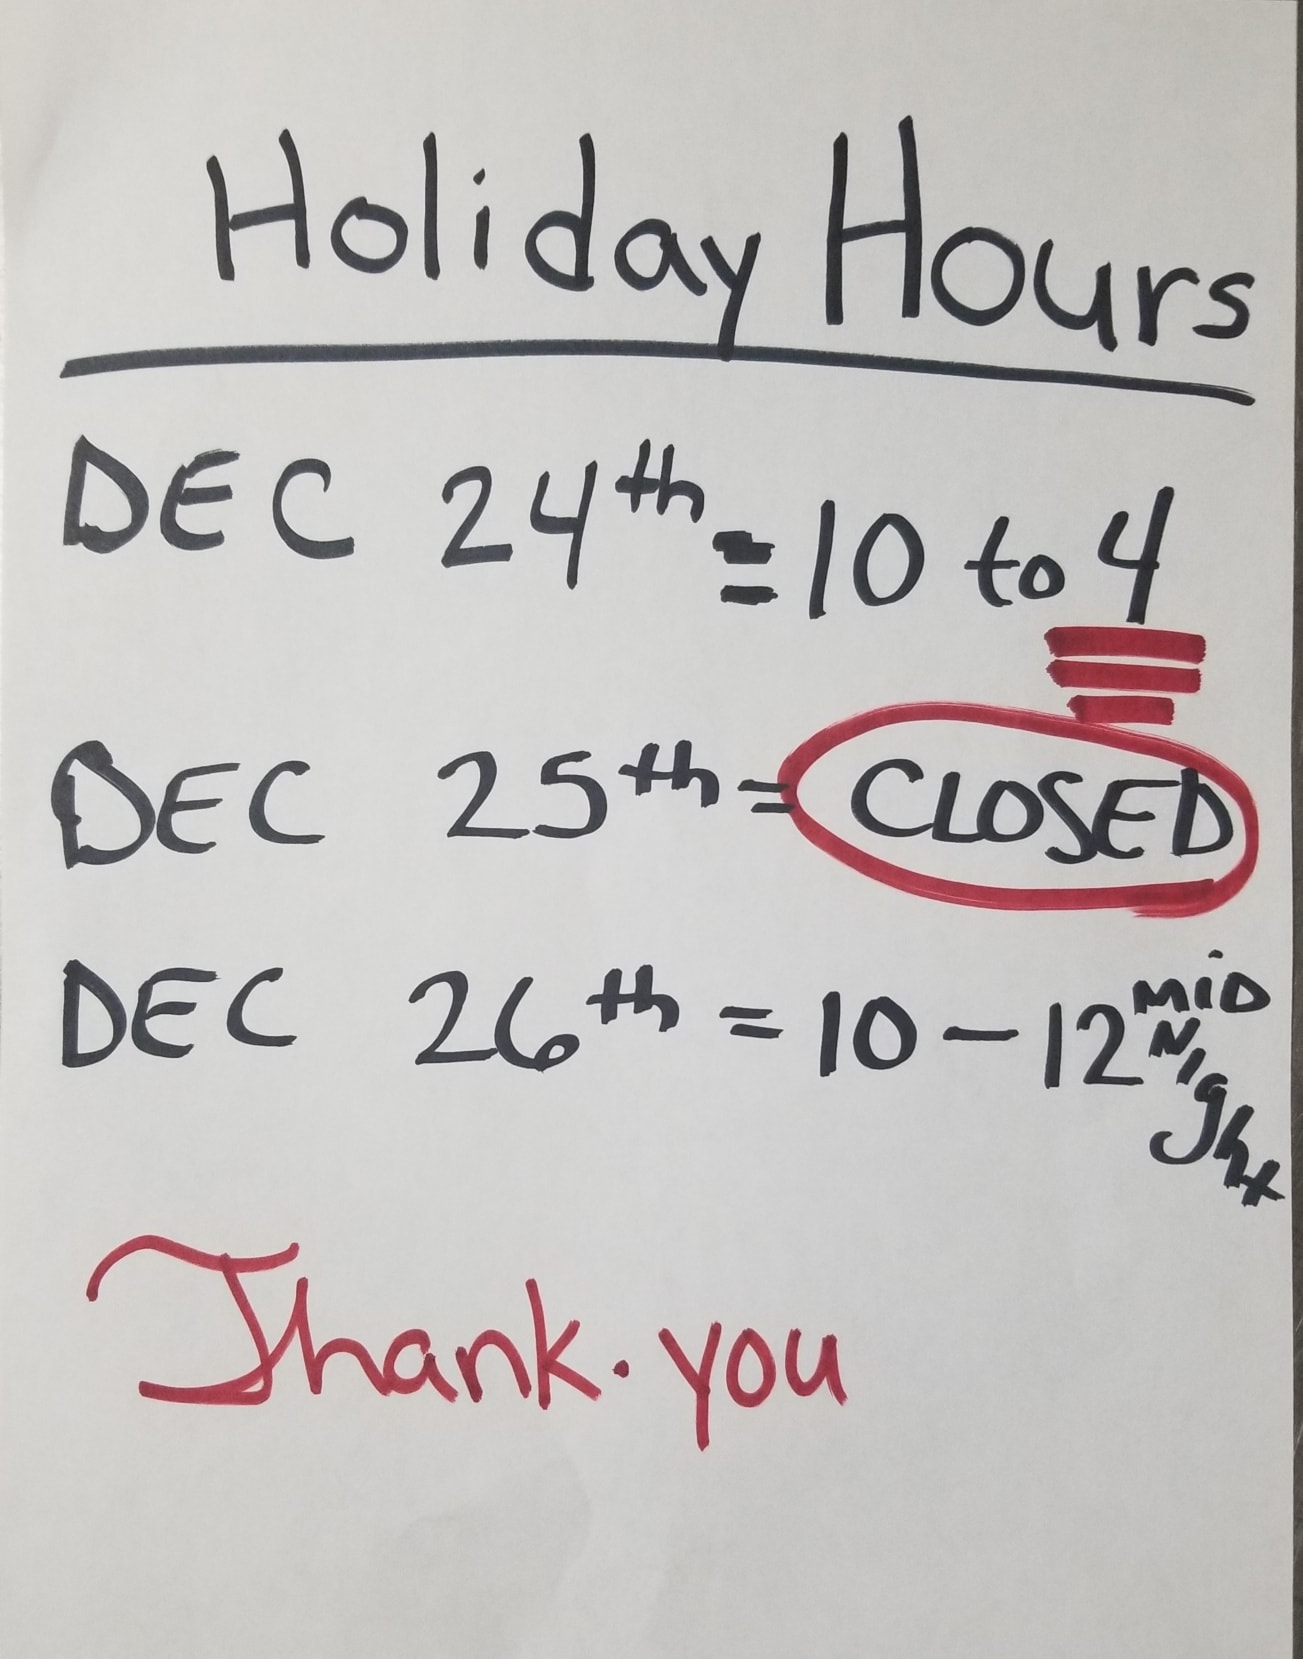 Holiday Hours
DEC 24th = 10 to 4
DEC 25th = CLOSED
DEC 26th = 10 - 12 MiD
Night
Thank. you